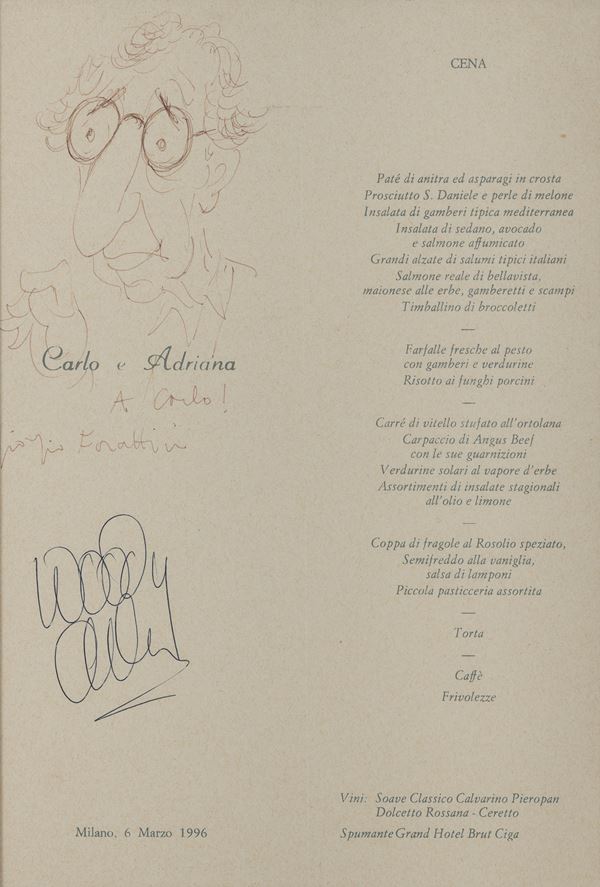 Carlo e Adriana
A Carlo!
Giorgio Forattini
Woody Allen
Milano, 6 Marzo 1996
CENA
Paté di anitra ed asparagi in crosta
Prosciutto S. Daniele e perle di melone
Insalata di gamberi tipica mediterranea
Insalata di sedano, avocado
e salmone affumicato
Grandi alzate di salumi tipici italiani
Salmone reale di bellavista,
maionese alle erbe, gamberetti e scampi
Timballino di broccoletti
—
Farfalle fresche al pesto
con gamberi e verdurine
Risotto ai funghi porcini
—
Carré di vitello stufato all'ortolana
Carpaccio di Angus Beef
con le sue guarnizioni
Verdurine solari al vapore d'erbe
Assortimenti di insalate stagionali
all'olio e limone
—
Coppa di fragole al Rosolio speziato,
Semifreddo alla vaniglia,
salsa di lamponi
Piccola pasticceria assortita
—
Torta
—
Caffè
Frivolezze
Vini: Soave Classico Calvarino Pieropan
Dolcetto Rossana - Ceretto
Spumante Grand Hotel Brut Ciga